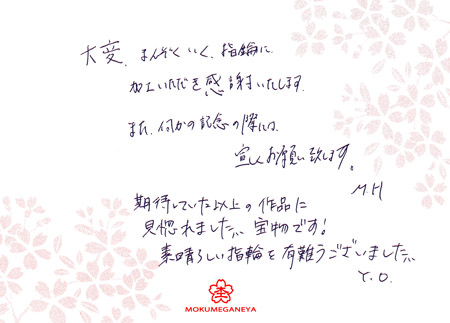 大変、まんぞくいく、指輪に、
加工いただき感謝いたします。
また、何かの記念の際には、
宜しくお願い致します。
M H
期待していた以上の作品に
見惚れました、、宝物です!
素晴らしい指輪を有難うございました、、
Y.O.
MOKUMEGANEYA